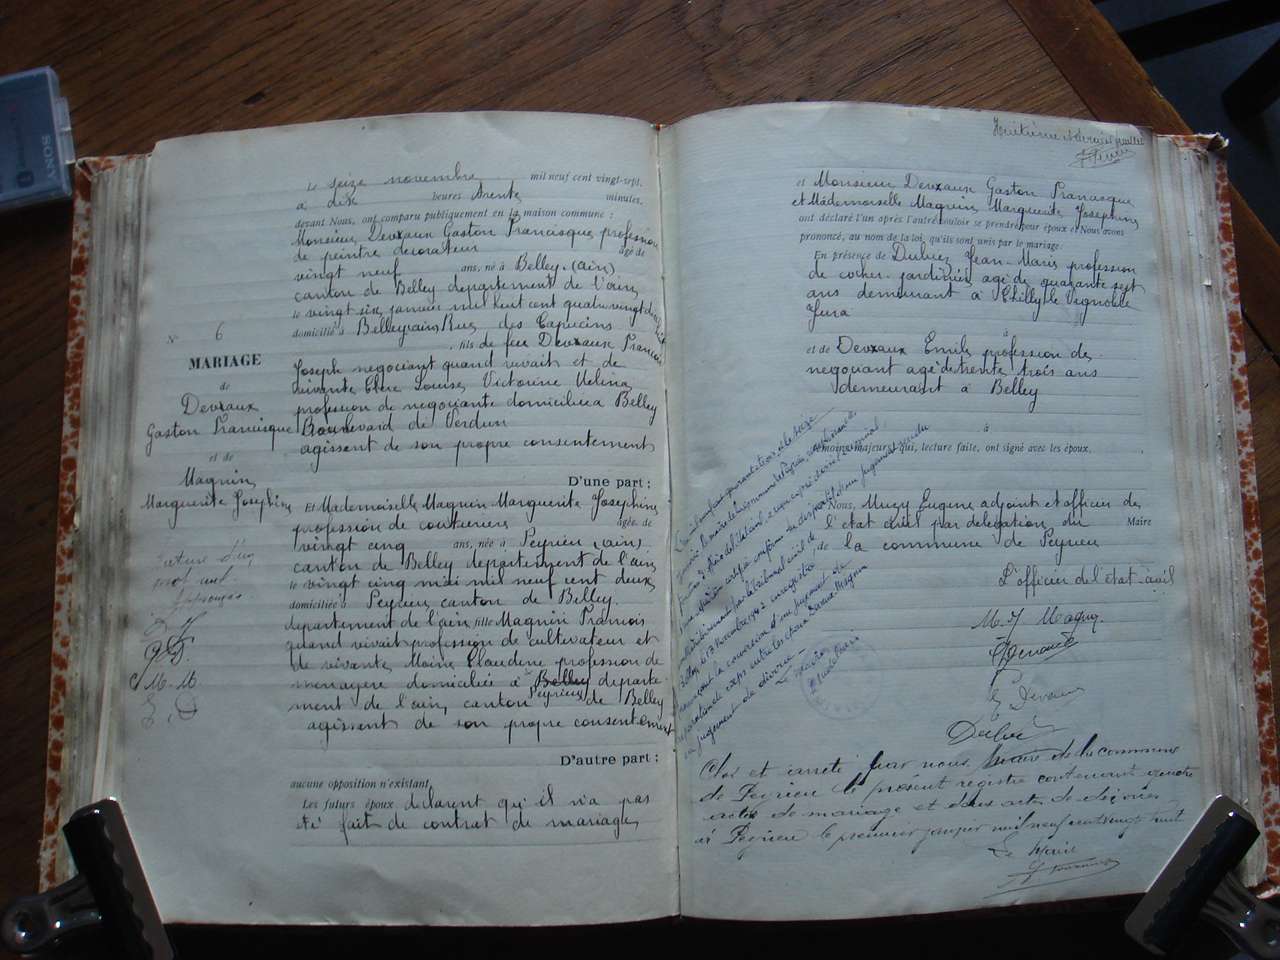 SONY
le seize novembre mil neuf cent vingt-sept.
à dix heures trente minutes.
devant Nous, ont comparu publiquement en la maison commune :
Monsieur Devraux Gaston Francisque profession
de peintre décorateur âgé de
vingt neuf ans, né à Belley (ain)
canton de Belley département de l'ain
le vingt six janvier mil huit cent quatre vingt dix huit
domicilié à Belley (ain) Rue des Capucins
fils de feu Devraux Francois
Joseph negociant quand vivait et de
vivante Louise Victorine Velina
profession de negociante domiciliée a Belley
Boulevard de Verdun
agissent de son propre consentement
D'une part :
N° 6
MARIAGE
de
Devraux
Gaston Francisque
et de
Magnin
Marguerite Josephine
Et Mademoiselle Magnin Marguerite Josephine
profession de couturiere âgée de
vingt cinq ans, née à Peyrieu (ain)
canton de Belley département de l'ain
le vingt cinq mai mil neuf cent deux
domiciliée à Peyrieu canton de Belley
departement de l'ain fille Magnin Francois
quand vivait profession de cultivateur et
de vivante Moine Claudine profession de
menagere domiciliée à Belley departe-
Peyrieu
ment de l'ain canton de Belley
agissent de son propre consentement
D'autre part :
aucune opposition n'existant
Les futurs époux declarent qu'il n'a pas
été fait de contrat de mariage
Rature d'un
mot nul
Approuvée
G D.
M. M
E. D
Huitième et dernier feuillet
et Monsieur Devraux Gaston Francisque
et Mademoiselle Magnin Marguerite Josephine
ont déclaré l'un après l'autre vouloir se prendre pour époux et Nous avons
prononcé, au nom de la loi, qu'ils sont unis par le mariage.
En présence de Jean-Marie profession
de jardinier agé de quarante sept
ans demeurant à Chilly le Vignoble
Jura
et de Devraux Emile profession de
negociant agé de trente trois ans
demeurant à Belley
à
témoins majeurs qui, lecture faite, ont signé avec les époux.
Nous, Eugene adjoint et officier de
l'état civil par delegation du Maire
de la commune de Peyrieu
L'officier de l'état civil
M. J Magnin
E Devraux
séparation de corps entre les époux Devraux-Magnin
en jugement de divorce
Clos et arrêté par nous Maire de la commune
de Peyrieu le présent registre contenant
actes de mariage et
à Peyrieu le premier janvier mil neuf cent vingt huit
Le Maire